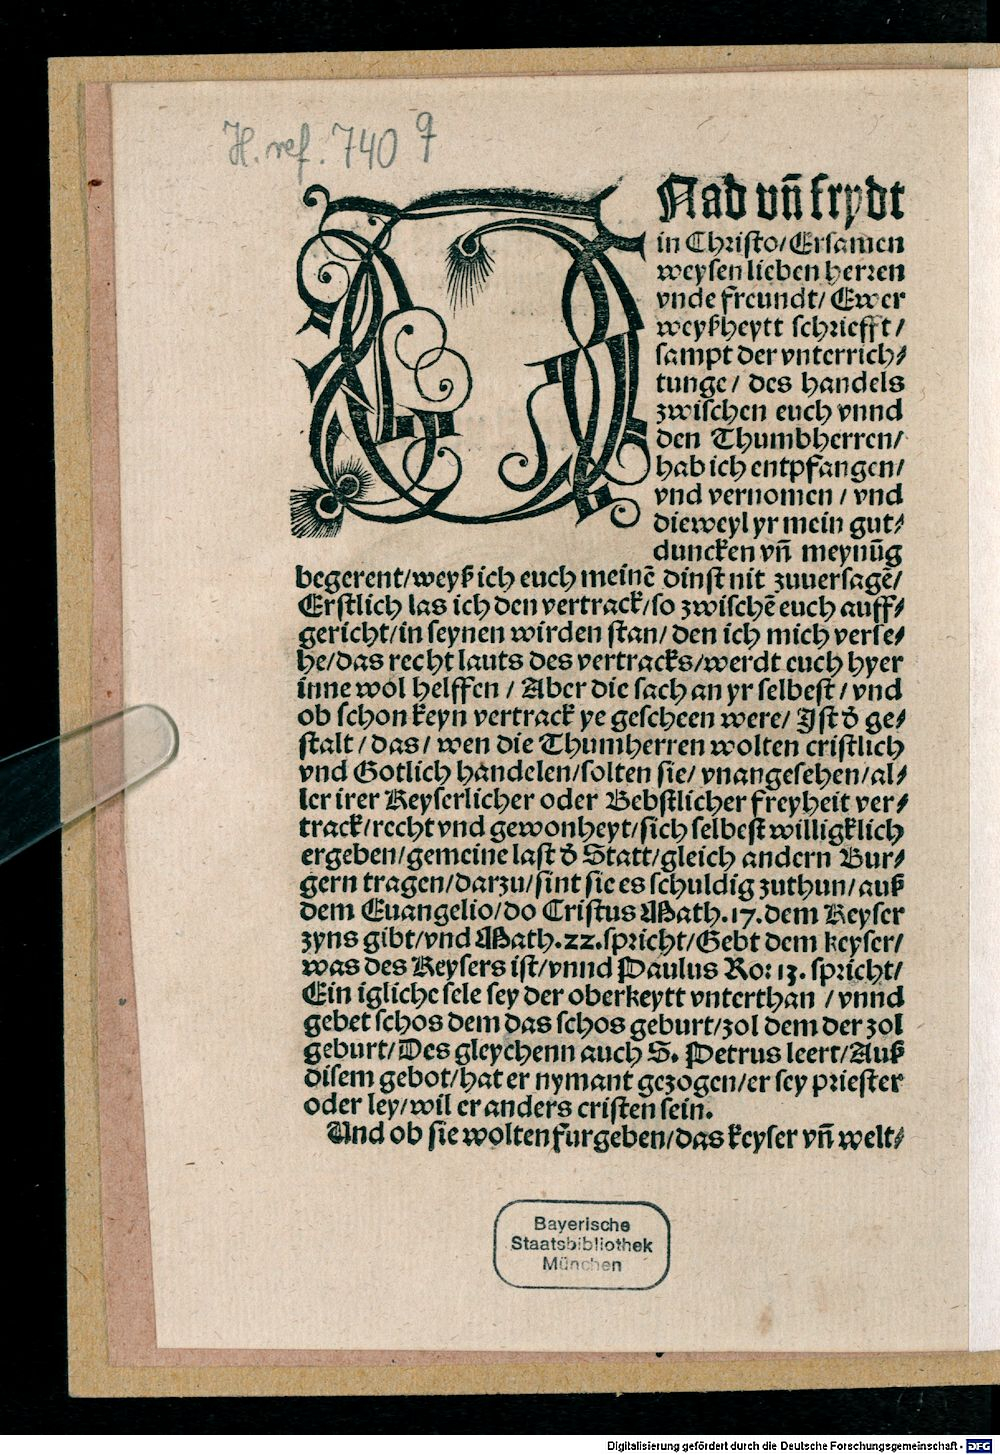 H. ref. 740 q
GNad vñ frydt
in Christo/Ersamen
weysen lieben herren
vnde freundt/ Ewer
weyßheytt schriefft/
sampt der vnterrich⸗
tunge/ des handels
zwischen euch vnnd
den Thumbherren/
hab ich entpfangen/
vnd vernomen / vnd
dieweyl yr mein gut⸗
duncken vñ meynũg
begerent/weyß ich euch meinẽ dinst nit zuuersagẽ/
Erstlich las ich den vertrack/so zwischẽ euch auff⸗
gericht/in seynen wirden stan/ den ich mich verse⸗
he/das recht lauts des vertracks/werdt euch hyer
inne wol helffen / Aber die sach an yr selbest / vnd
ob schon keyn vertrack ye gescheen were/ Ist d̕ ge⸗
stalt / das/ wen die Thumherren wolten cristlich
vnd Gotlich handelen/solten sie/ vnangesehen/al⸗
ler irer Keyserlicher oder Bebstlicher freyheit ver⸗
track/recht vnd gewonheyt/sich selbest willigklich
ergeben/gemeine last d̕ Statt/gleich andern Bur⸗
gern tragen/darzu/sint sie es schuldig zuthun/auß
dem Euangelio/do Cristus Math.17.dem Keyser
zyns gibt/vnd Math.22.spricht/Gebt dem keyser/
was des Keysers ist/vnnd Paulus Ro: 13. spricht/
Ein igliche sele sey der oberkeytt vnterthan / vnnd
gebet schos dem das schos geburt/zol dem der zol
geburt/Des gleychenn auch S. Petrus leert/Auß
disem gebot/hat er nymant gezogen/er sey priester
oder ley/wil er anders cristen sein.
Und ob sie wolten furgeben/das keyser vñ welt⸗
Bayerische
Staatsbibliothek
München
Digitalisierung gefördert durch die Deutsche Forschungsgemeinschaft - DFG